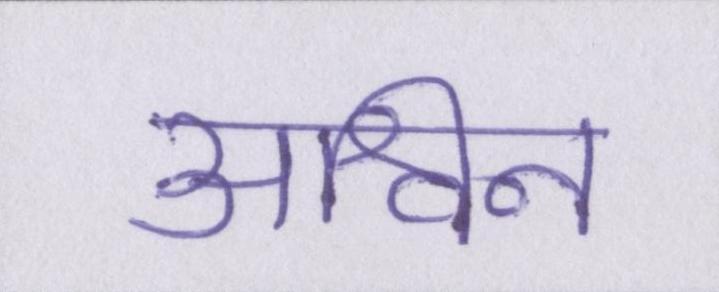 अश्विन